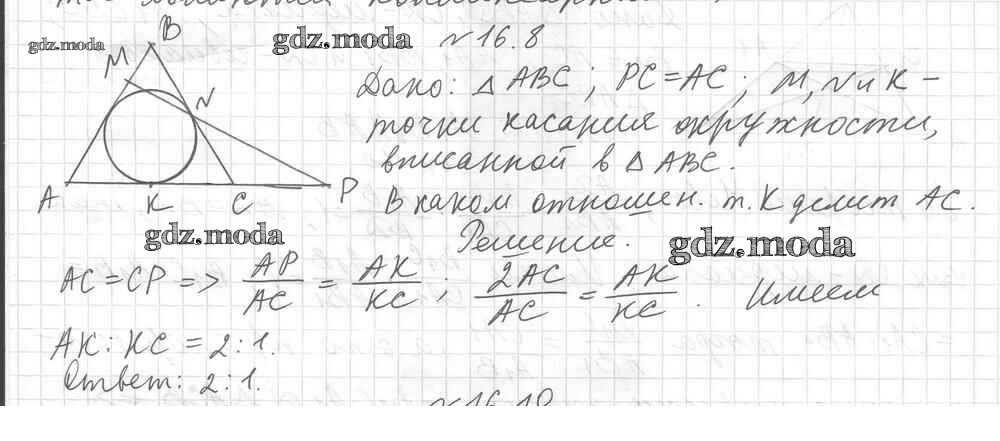 №16.8
Дано: △ABC; PC=AC; M, N и K –
точки касания окружности,
вписанной в △ABC.
В каком отношен. т. K делит AC.
Решение.
B
M
N
A
K
C
P
gdz.moda
gdz.moda
gdz.moda
gdz.moda
AC = CP => AP/AC = AK/KC; 2AC/AC = AK/KC. Имеем
AK : KC = 2:1.
Ответ: 2:1.